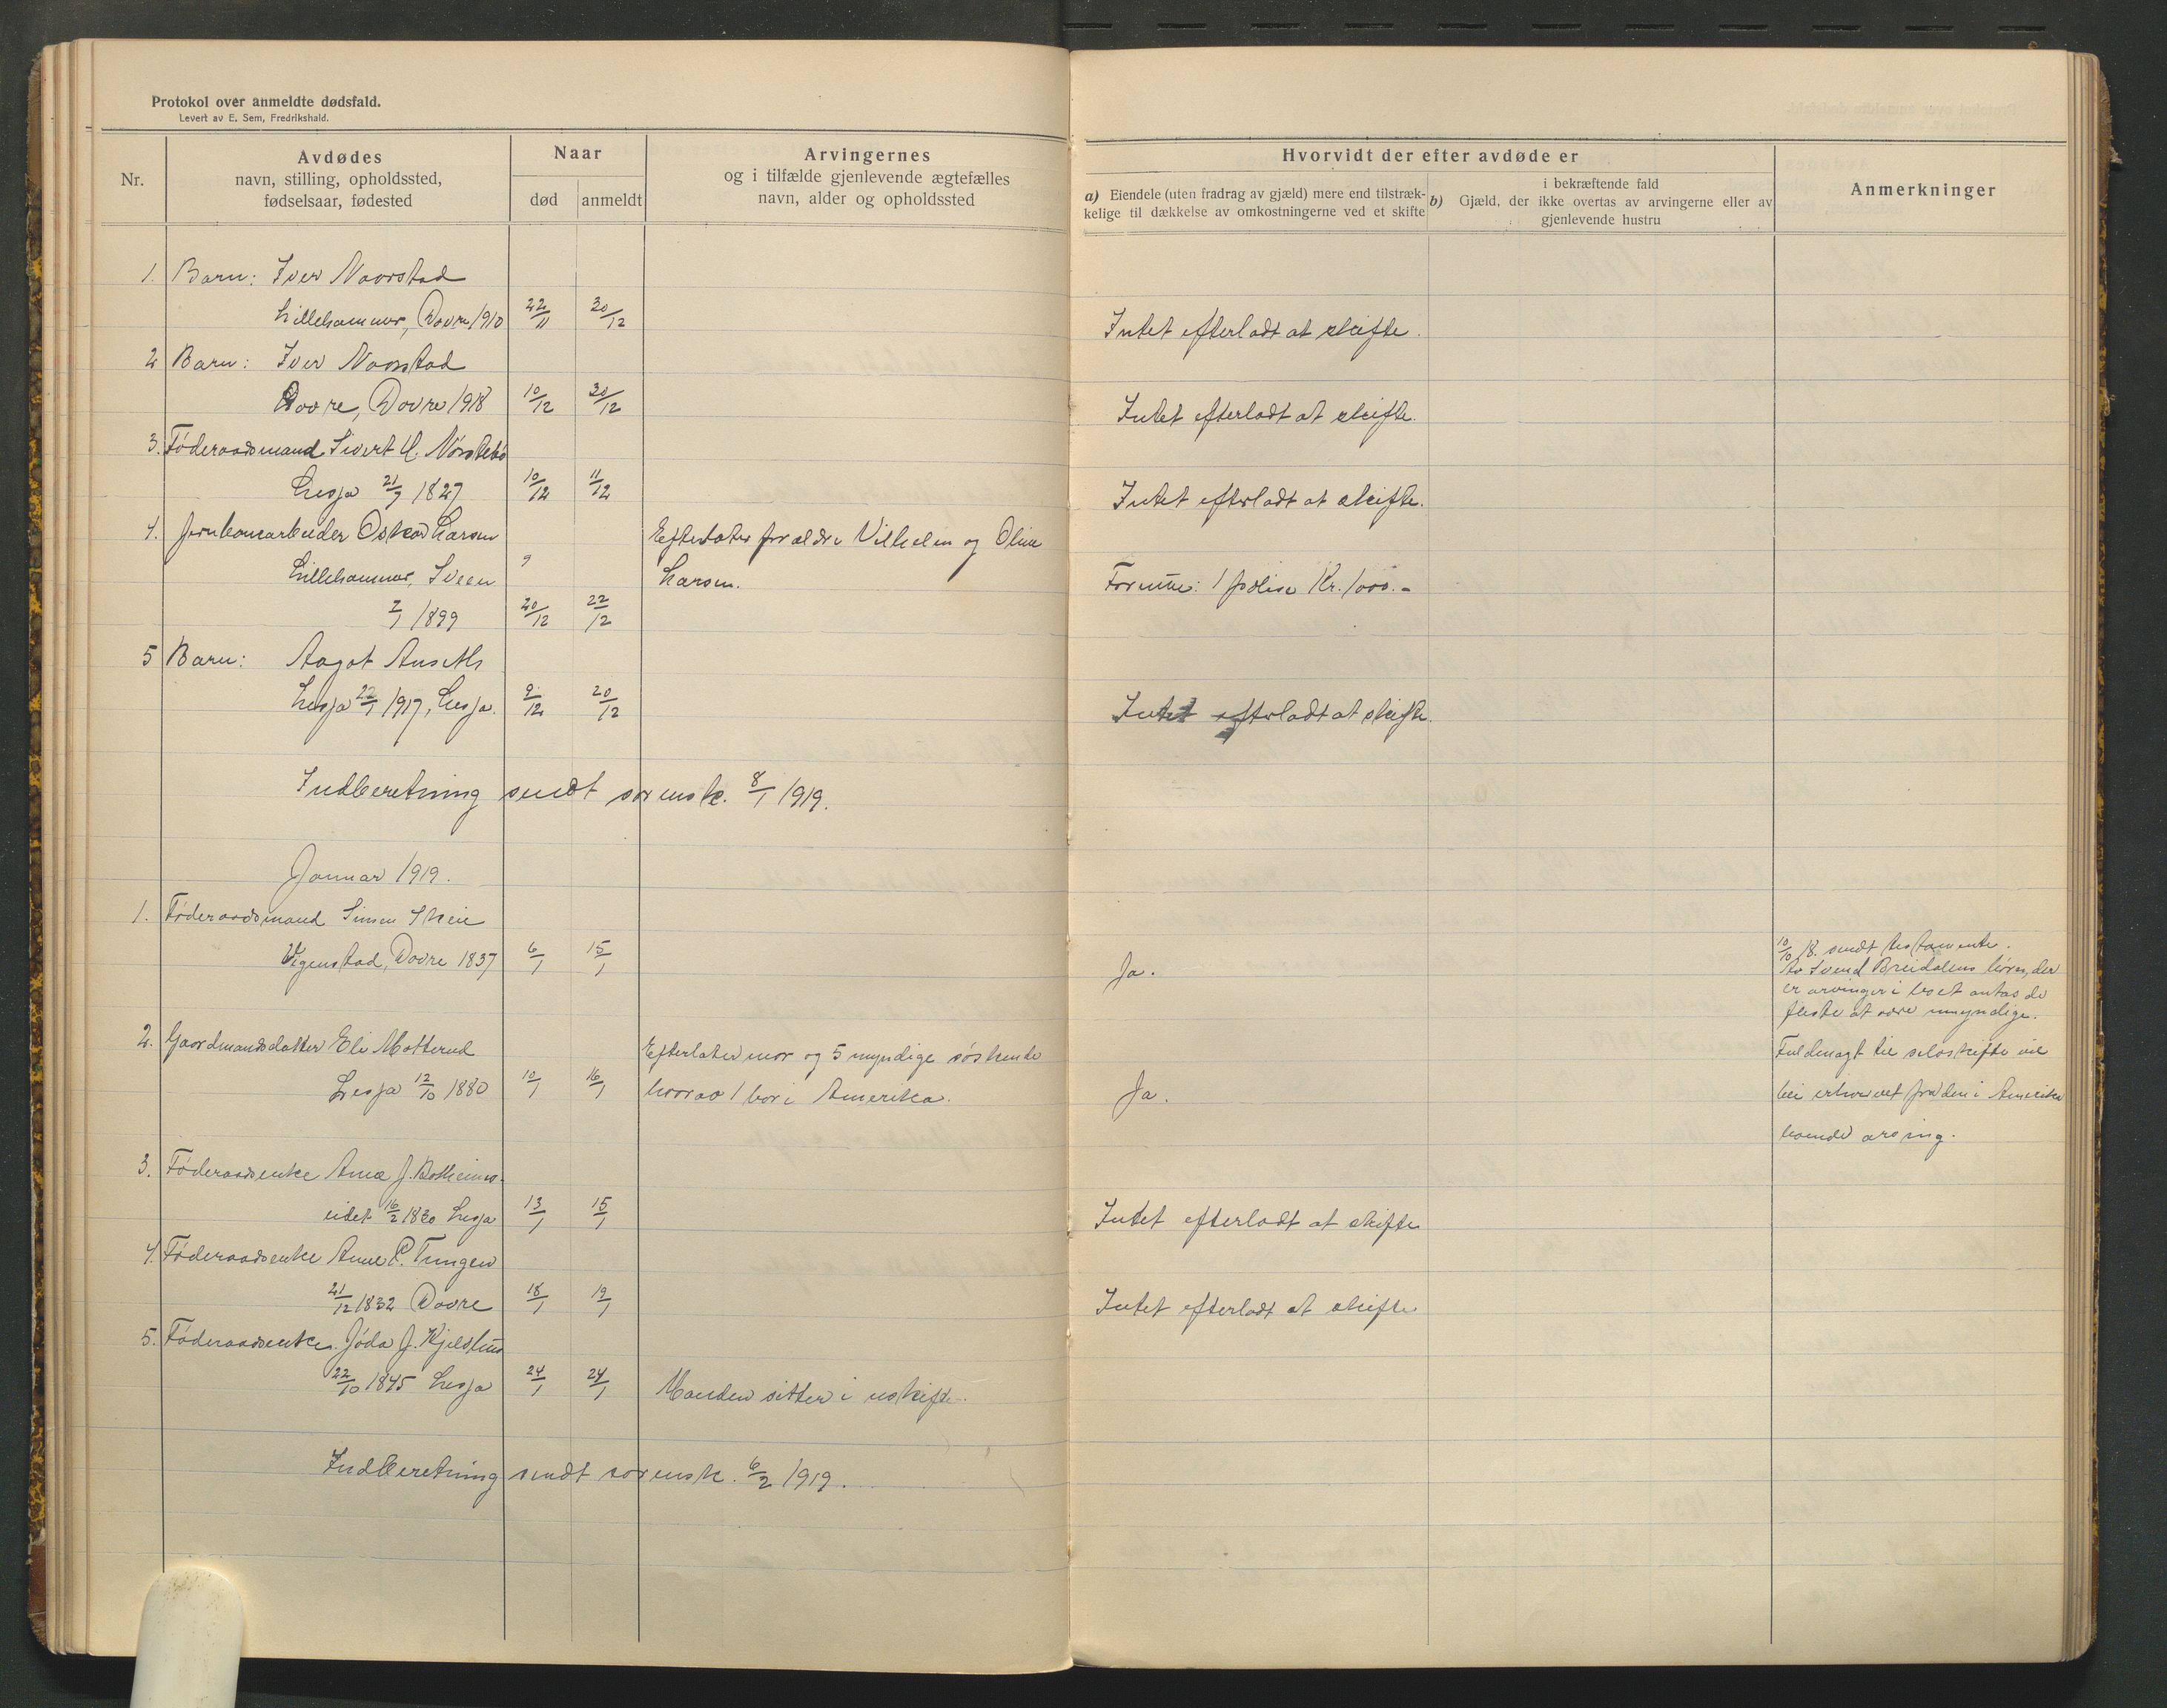 Protokol over anmeldte dødsfald.
Levert av E. Sem, Fredrikshald.
Nr.
Avdødes
navn, stilling, opholdssted,
fødselsaar, fødested
Naar
død
anmeldt
Arvingernes
og i tilfælde gjenlevende ægtefælles
navn, alder og opholdssted
Hvorvidt der efter avdøde er
a) Eiendele (uten fradrag av gjæld) mere end tilstræk-
kelige til dækkelse av omkostningerne ved et skifte
i bekræftende fald
b) Gjæld, der ikke overtas av arvingerne eller av
gjenlevende hustru
Anmerkninger
1. Barn: Iver Noorstad
Lillehammer, Dovre 1910 22/11 30/12 Intet efterladt at skifte.
2 Barn: Iver Noorstad
Dovre, Dovre 1918 10/12 30/12 Intet efterladt at skifte.
3. Føderaadsmand Sivert U. Nørstebø
Lesja 21/7 1827 10/12 11/12 Intet efterladt at skifte.
4. Jernbanearbeider Oskar Larsen Efterlater forældre Vilhelm og Oline
Lillehammer, Sveen Larsen. Formue: 1 polise Kr. 1000.-
7/1 1899 20/12 22/12
5 Barn: Aagot Anseth
Lesja 22/1 1917, Lesja. 9/12 20/12 Intet efterladt at skifte.
Indberetning sendt sorensk. 8/1 1919.
Januar 1919.
1. Føderaadsmand Simen Skeie
Vigenstad, Dovre 1837 6/1 15/1 Ja.
10/10 18. sendt testamente.
Av Svend Breidalens børn, der
er arvinger i boet antas de
fleste at være umyndige.
2. Gaardmandsdatter Eli Motterud Efterlater mor og 5 myndige søskende Fuldmagt til selvskifte vil
Lesja 12/10 1880 10/1 16/1 hvorav 1 bor i Amerika. Ja. bli erhvervet fra den i Amerika
boende arving.
3. Føderaadsenke Anne J. Botheims-
eidet 16/2 1830 Lesja 13/1 15/1 Intet efterladt at skifte
4. Føderaadsenke Anne P. Tungen
21/12 1832 Dovre 18/1 19/1 Intet efterladt at skifte
5. Føderaadsenke Jøda J.
22/10 1845 Lesja 24/1 24/1 Manden sitter i uskifte.
Indberetning sendt sorensk. 6/2 1919.